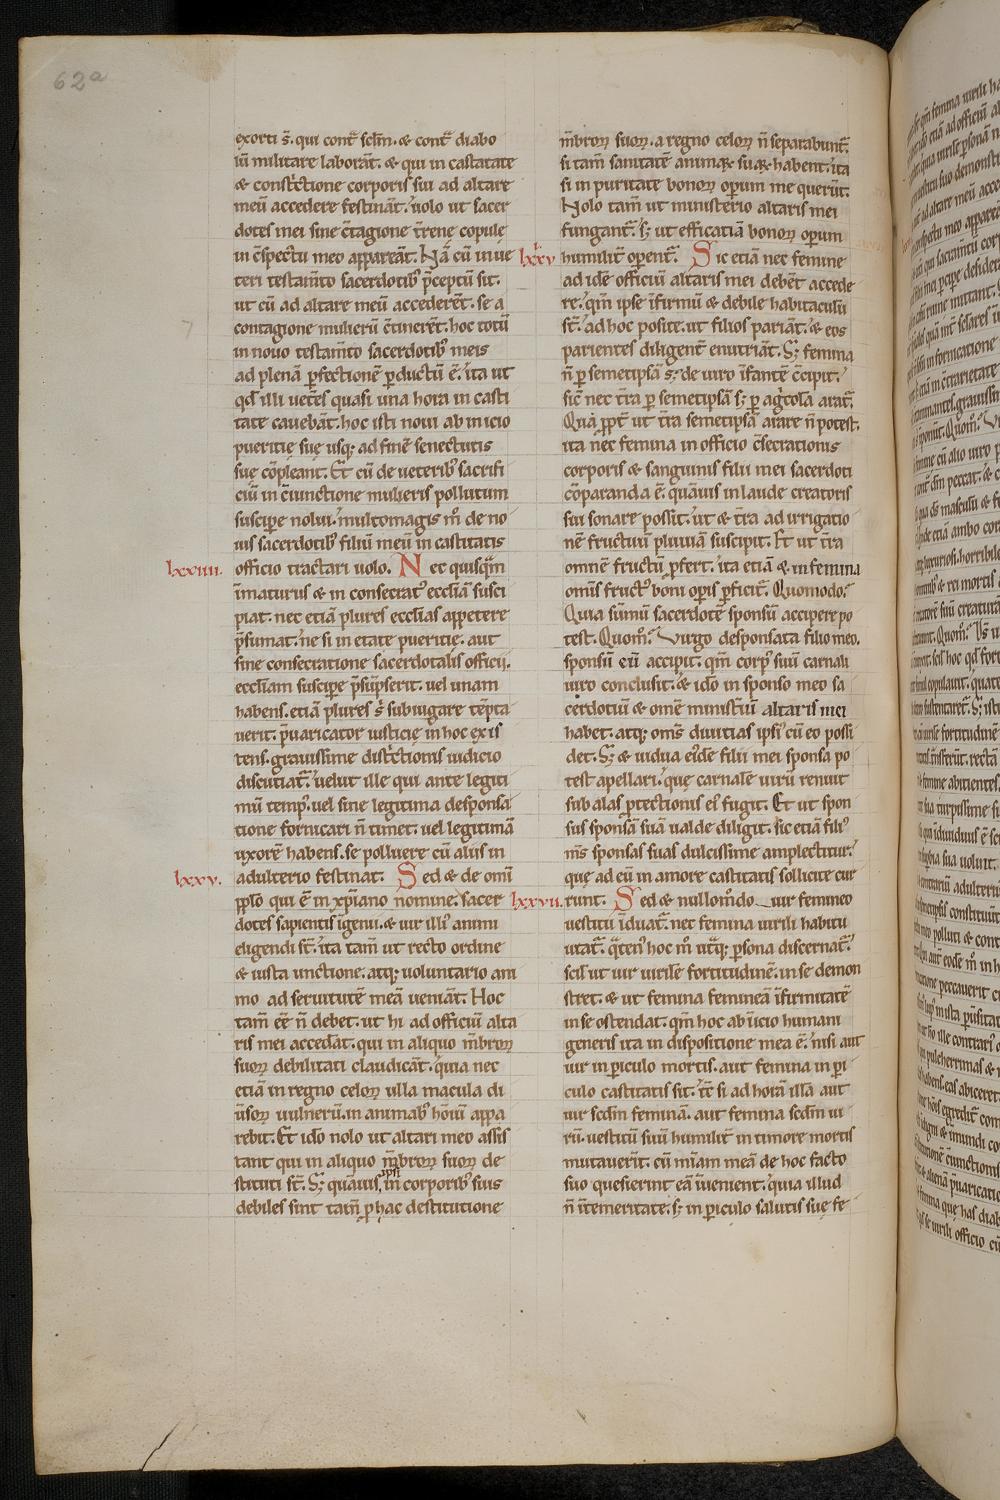 62a
exorti s̄. qui cont̄ sclm̄. & cont̄ diabo
lū militare laborāt. & qui in castitate
& constrictione corporis sui ad altare
meū accedere festināt. uolo ut sacer
dotes mei sine c̄tagione t̄rene copule
in c̄spectu meo appareāt. Nā cū in ue
teri testam̄to sacerdotib' p̄ceptū sit.
ut cū ad altare meū accederēt. se a
contagione mulierū c̄tinerēt. hoc totū
in nouo testam̄to sacerdotib' meis
ad plenā ꝑfectionē ꝑductū ē. ita ut
qd̄ illi uet̄es quasi una hora in casti
tate cauebāt. hoc isti noui ab inicio
pueritię suę usq; ad finē senectutis
suę cōpleant. Et cū de ueterib' sacrifi
ciū in c̄iunctione mulieris pollutum
suscipe nolui. multomagis m̊ de no
uis sacerdotib' filiū meū in castitatis
lxxiiii. officio tractari uolo. Nec quisq̄m
īmaturus & in consecrat' ecclīam susci
piat. nec etiā plures ecclīas appetere
p̄sumat. ne si in etate pueritie. aut
sine consecratione sacerdotalis officij.
ecclīam suscipe p̄sūpserit. uel unam
habens. etiā plures s̄ subiugare tēpta
uerit. p̄uaricator iusticię in hoc exis
tens. grauissime districtionis iudicio
discutiat̄. uelut ille qui ante legiti
mū temp'. uel sine legitima desponsa
tione fornicari n̄ timet. uel legitimā
uxorē habens. se polluere cū aliis in
lxxv. adulterio festinat. Sed & de omī
pp̄lo qui ē in xp̄iano nomine. sacer
dotes sapientis īgenii. & uir illi' animi
eligendi st̄. ita tam̄ ut recto ordine
& iusta unctione. atq; uoluntario ani
mo ad seruitutē meā ueniāt. Hoc
tam̄ eē n̄ debet. ut hi ad officiū alta
ris mei accedāt. qui in aliquo m̄broꝝ
suoꝝ debilitati claudicāt. quia nec
etiā in regno celoꝝ ulla macula di
ūsoꝝ uulnerū. in animab' hōiū appa
rebit. Et idō nolo ut altari meo assis
tant qui in aliquo m̄broꝝ suoꝝ de
stituti st̄. S; quāuis ipsi in corporib' suis
debiles sint tam̄ ꝓ hac destitutione
m̄broꝝ suoꝝ. a regno celoꝝ n̄ separabunt̄.
si tam̄ sanitatē animaꝝ suaꝝ habent. ita
si in puritate bonoꝝ opum me querūt.
Nolo tam̄ ut ministerio altaris mei
fungant̄. s; ut efficatiā bonoꝝ opum
lxxvi humilit̄ opent̄. Sic etiā nec femine
ad idē officiū altaris mei debēt accede
re. qm̄ ipse īfirmū & debile habitaculū
st̄. ad hoc posite. ut filios pariāt. & eos
parientes diligent̄ enutriāt. S; femina
n̄ p semetipsā s; de uiro īfantē c̄cipit.
sic̄ nec t̄ra p semetipsā s; p ag̊colā arat̄.
Quā ppt̄ ut t̄ra semetipsā arare n̄ potest.
ita nec femina in officio c̄secrationis
corporis & sanguinis filii mei sacerdoti
cōparanda ē. quāuis in laude creatoris
sui sonare possit. ut & t̄ra ad irrigatio
nē fructuū pluuiā suscipit. Et ut t̄ra
omnē fructū ꝓfert. ita etiā & in femina
omīs fruct' boni opis ꝑficit̄. Quomodo?
Quia sūmū sacerdotē sponsū accipere po
test. Quom̊? Uirgo desponsata filio meo.
sponsū eū accipit. qm̄ corp' suū carnali
uiro conclusit. & idō in sponso meo sa
cerdotiū & omē minist̄iū altaris mei
habet. atq; oms̄ diuitias ipsi' cū eo possi
det. S; & uidua ei'dē filii mei sponsa po
test apellari. quę carnalē uirū renuit
sub alas ꝓtectionis ei' fugit. Et ut spon
sus sponsā suā ualde diligit. sic etiā fili'
ms̄ sponsas suas dulcissime amplectitur.
quę ad eū in amore castitatis sollicite cur
lxxvii. runt. Sed & nullom̊do uir femineo
uestitu īduat̄. nec femina uirili habitu
utat̄. q̄ten' hoc m̊ ut̄q; ꝑsona discernat̄.
scil' ut uir uirilē fortitudinē. in se demon
stret. & ut femina femineā īfirmitatē
in se ostendat. qm̄ hoc ab īicio humani
generis ita in dispositione mea ē. nisi aut
uir in ꝑiculo mortis. aut femina in ꝑi
culo castitatis sit. t̄c si ad horā illā aut
uir scdm̄ feminā. aut femina scdm̄ ui
rū. uestitū suū humilit̄ in timore mortis
mutauerīt. cū mīam meā de hoc facto
suo quesierint eā īuenient. quia illud
n̄ ī temeritate. s; in ꝑiculo salutis suę fe